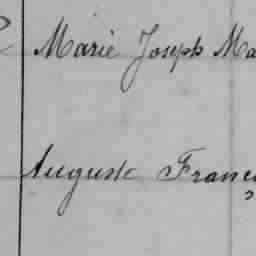 Marie Joseph Ma
Auguste Franç